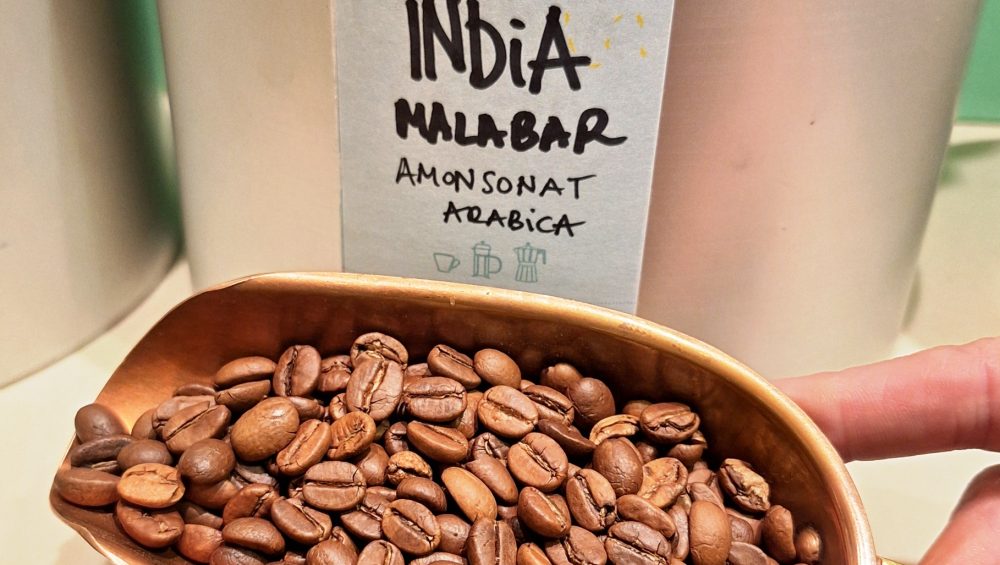 INDiA
MALABAR
AMONSONAT
ARABiCA